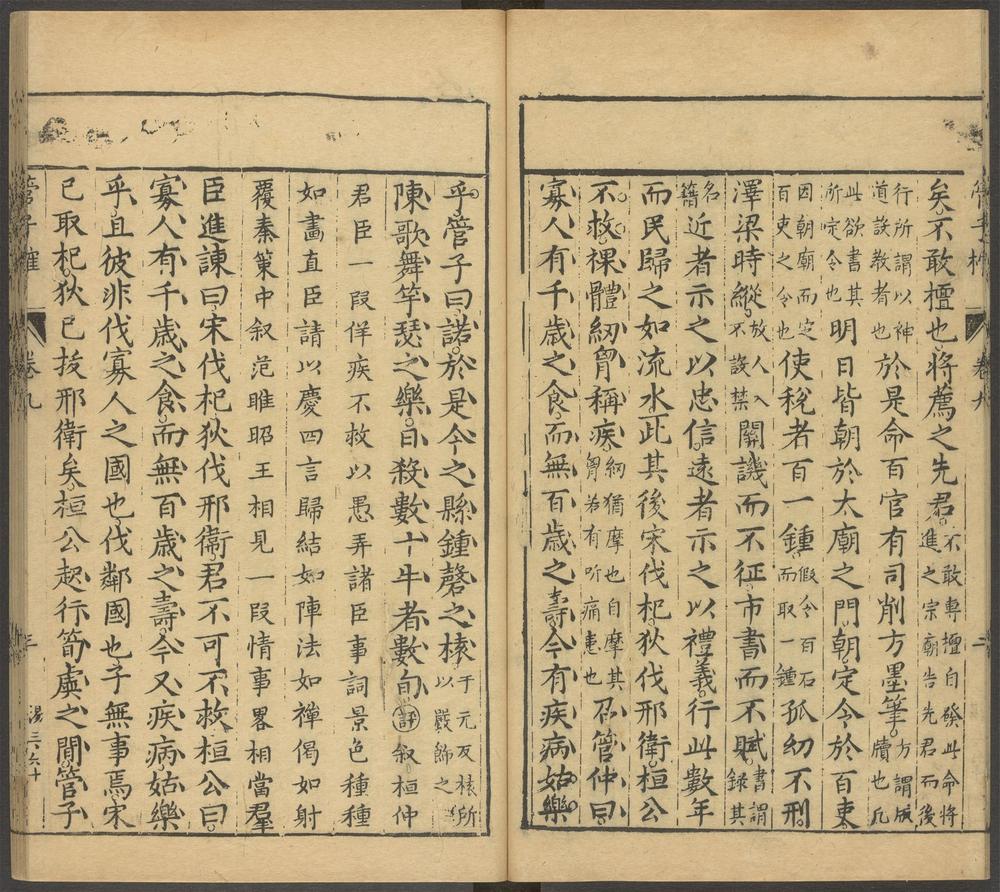 矣不敢擅也將薦之先君不敢專擅自發此命將
進之宗廟告先君而後
行所謂以神
道設教者也於是命百官有司削方墨筆方謂版
牘也凡
此欲書其
所定令也明日皆朝於太廟之門朝定令於百吏
因朝廟而定
百吏之令也使稅者百一鍾假令百石
而取一鍾孤幼不刑
澤梁時縱放人入
不設禁關譏而不征市書而不賦書謂
錄其
名
籍近者示之以忠信遠者示之以禮義行此數年
而民歸之如流水此其後宋伐杞狄伐邢衛桓公
不救裸體紉胷稱疾紉猶摩也自摩其
胷若有所痛患也召管仲曰
寡人有千歲之食而無百歲之壽今有疾病姑樂
乎管子曰諾於是令之縣鍾磬之榱于元反榱所
以嚴飾之
陳歌舞竽瑟之樂日殺數十牛者數旬評叙桓仲
君臣一叚佯疾不救以愚弄諸臣事詞景色種種
如畵直臣請以慶四言歸結如陣法如禪偈如射
覆秦策中叙范雎昭王相見一叚情事畧相當羣
臣進諫曰宋伐杞狄伐邢衛君不可不救桓公曰
寡人有千歲之食而無百歲之壽今又疾病姑樂
乎且彼非伐寡人之國也伐鄰國也子無事焉宋
已取杞狄已拔邢衛矣桓公起行筍虡之間管子
卷九
湯三六十